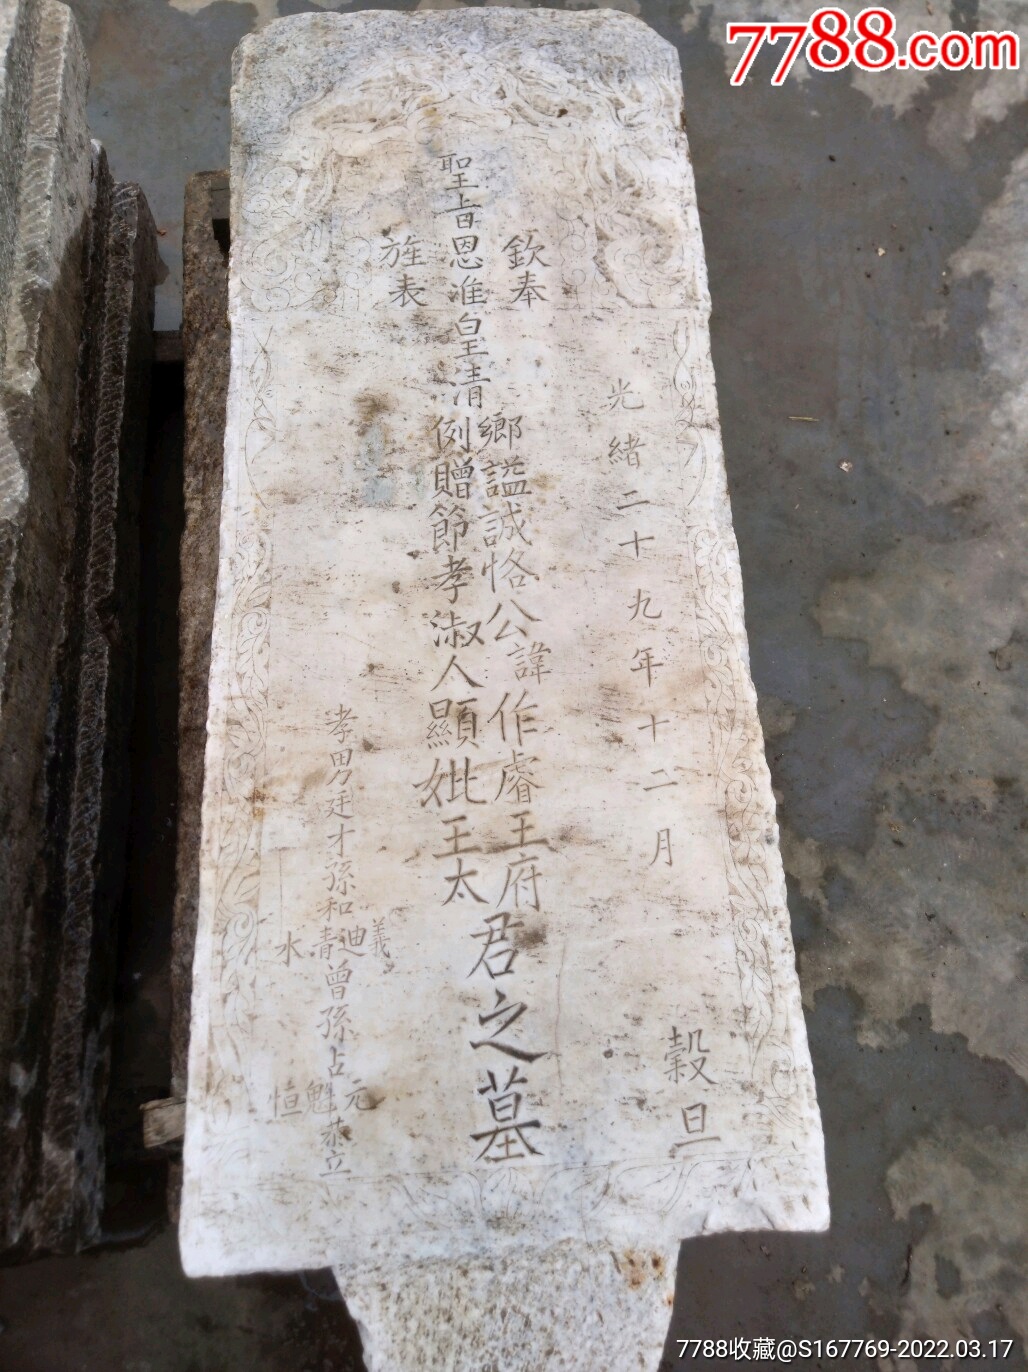 7788.com
光緒二十九年十二月
穀旦
欽奉
聖旨恩准皇清
旌表
鄉謚誠恪公諱作睿王府
例贈節孝淑人顯妣王太
君之墓
孝男廷才孫和
義
迪
青
水
曾孫占
元
魁
恒
恭立
7788收藏@S167769-2022.03.17